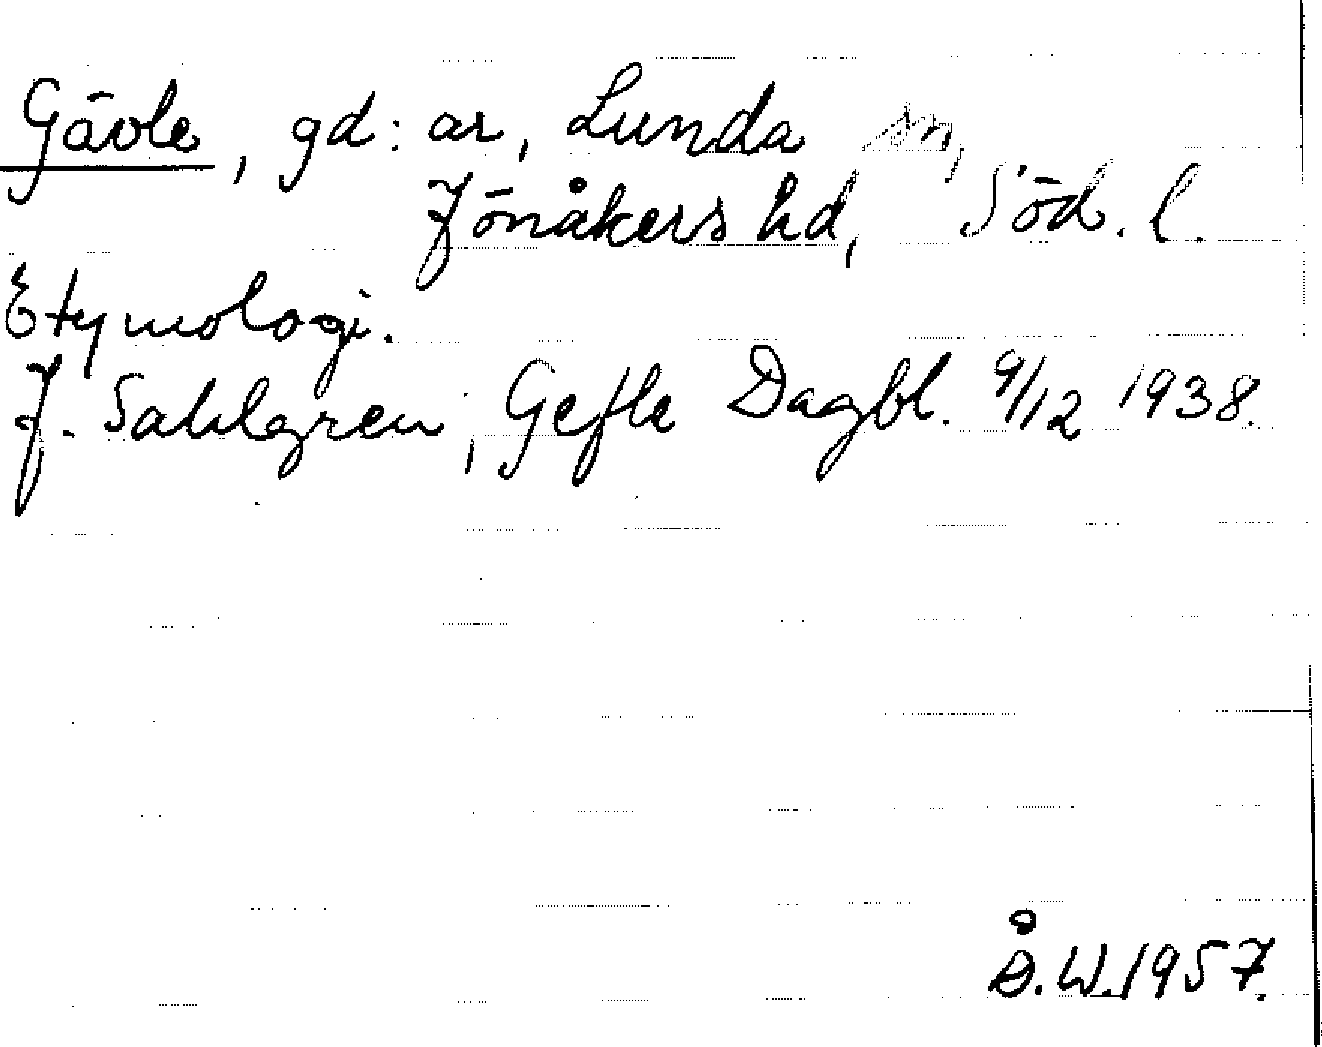 Gävle, gd:ar, Lunda sn,
Jönåkers hd, Söd. l.
Etymologi.
J. Sahlgren, Gefle Dagbl. 9/12 1938.
Å.W.1957.